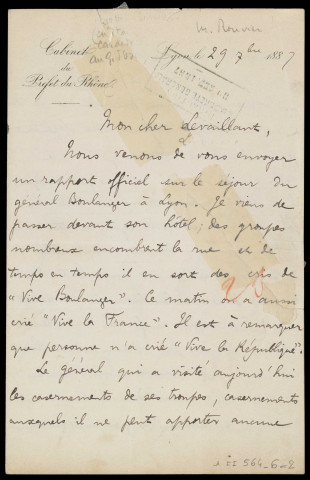 M. Rouvier
Cabinet
du
Préfet du Rhône
Lyon le 29 7bre 1887
Mon cher Levaillant,
Nous venons de vous envoyer
un rapport officiel sur le séjour du
général Boulanger à Lyon. Je viens de
passer devant son hôtel ; des groupes
nombreux encombrent la rue et de
temps en temps il en sort des cris de
"Vive Boulanger". Ce matin on a aussi
crié "Vive la France". Il est à remarquer
que personne n'a crié "Vive la République".
Le Général qui a visité aujourd'hui
les casernements de ses troupes, casernements
auxquels il ne peut apporter aucune
564-6-2